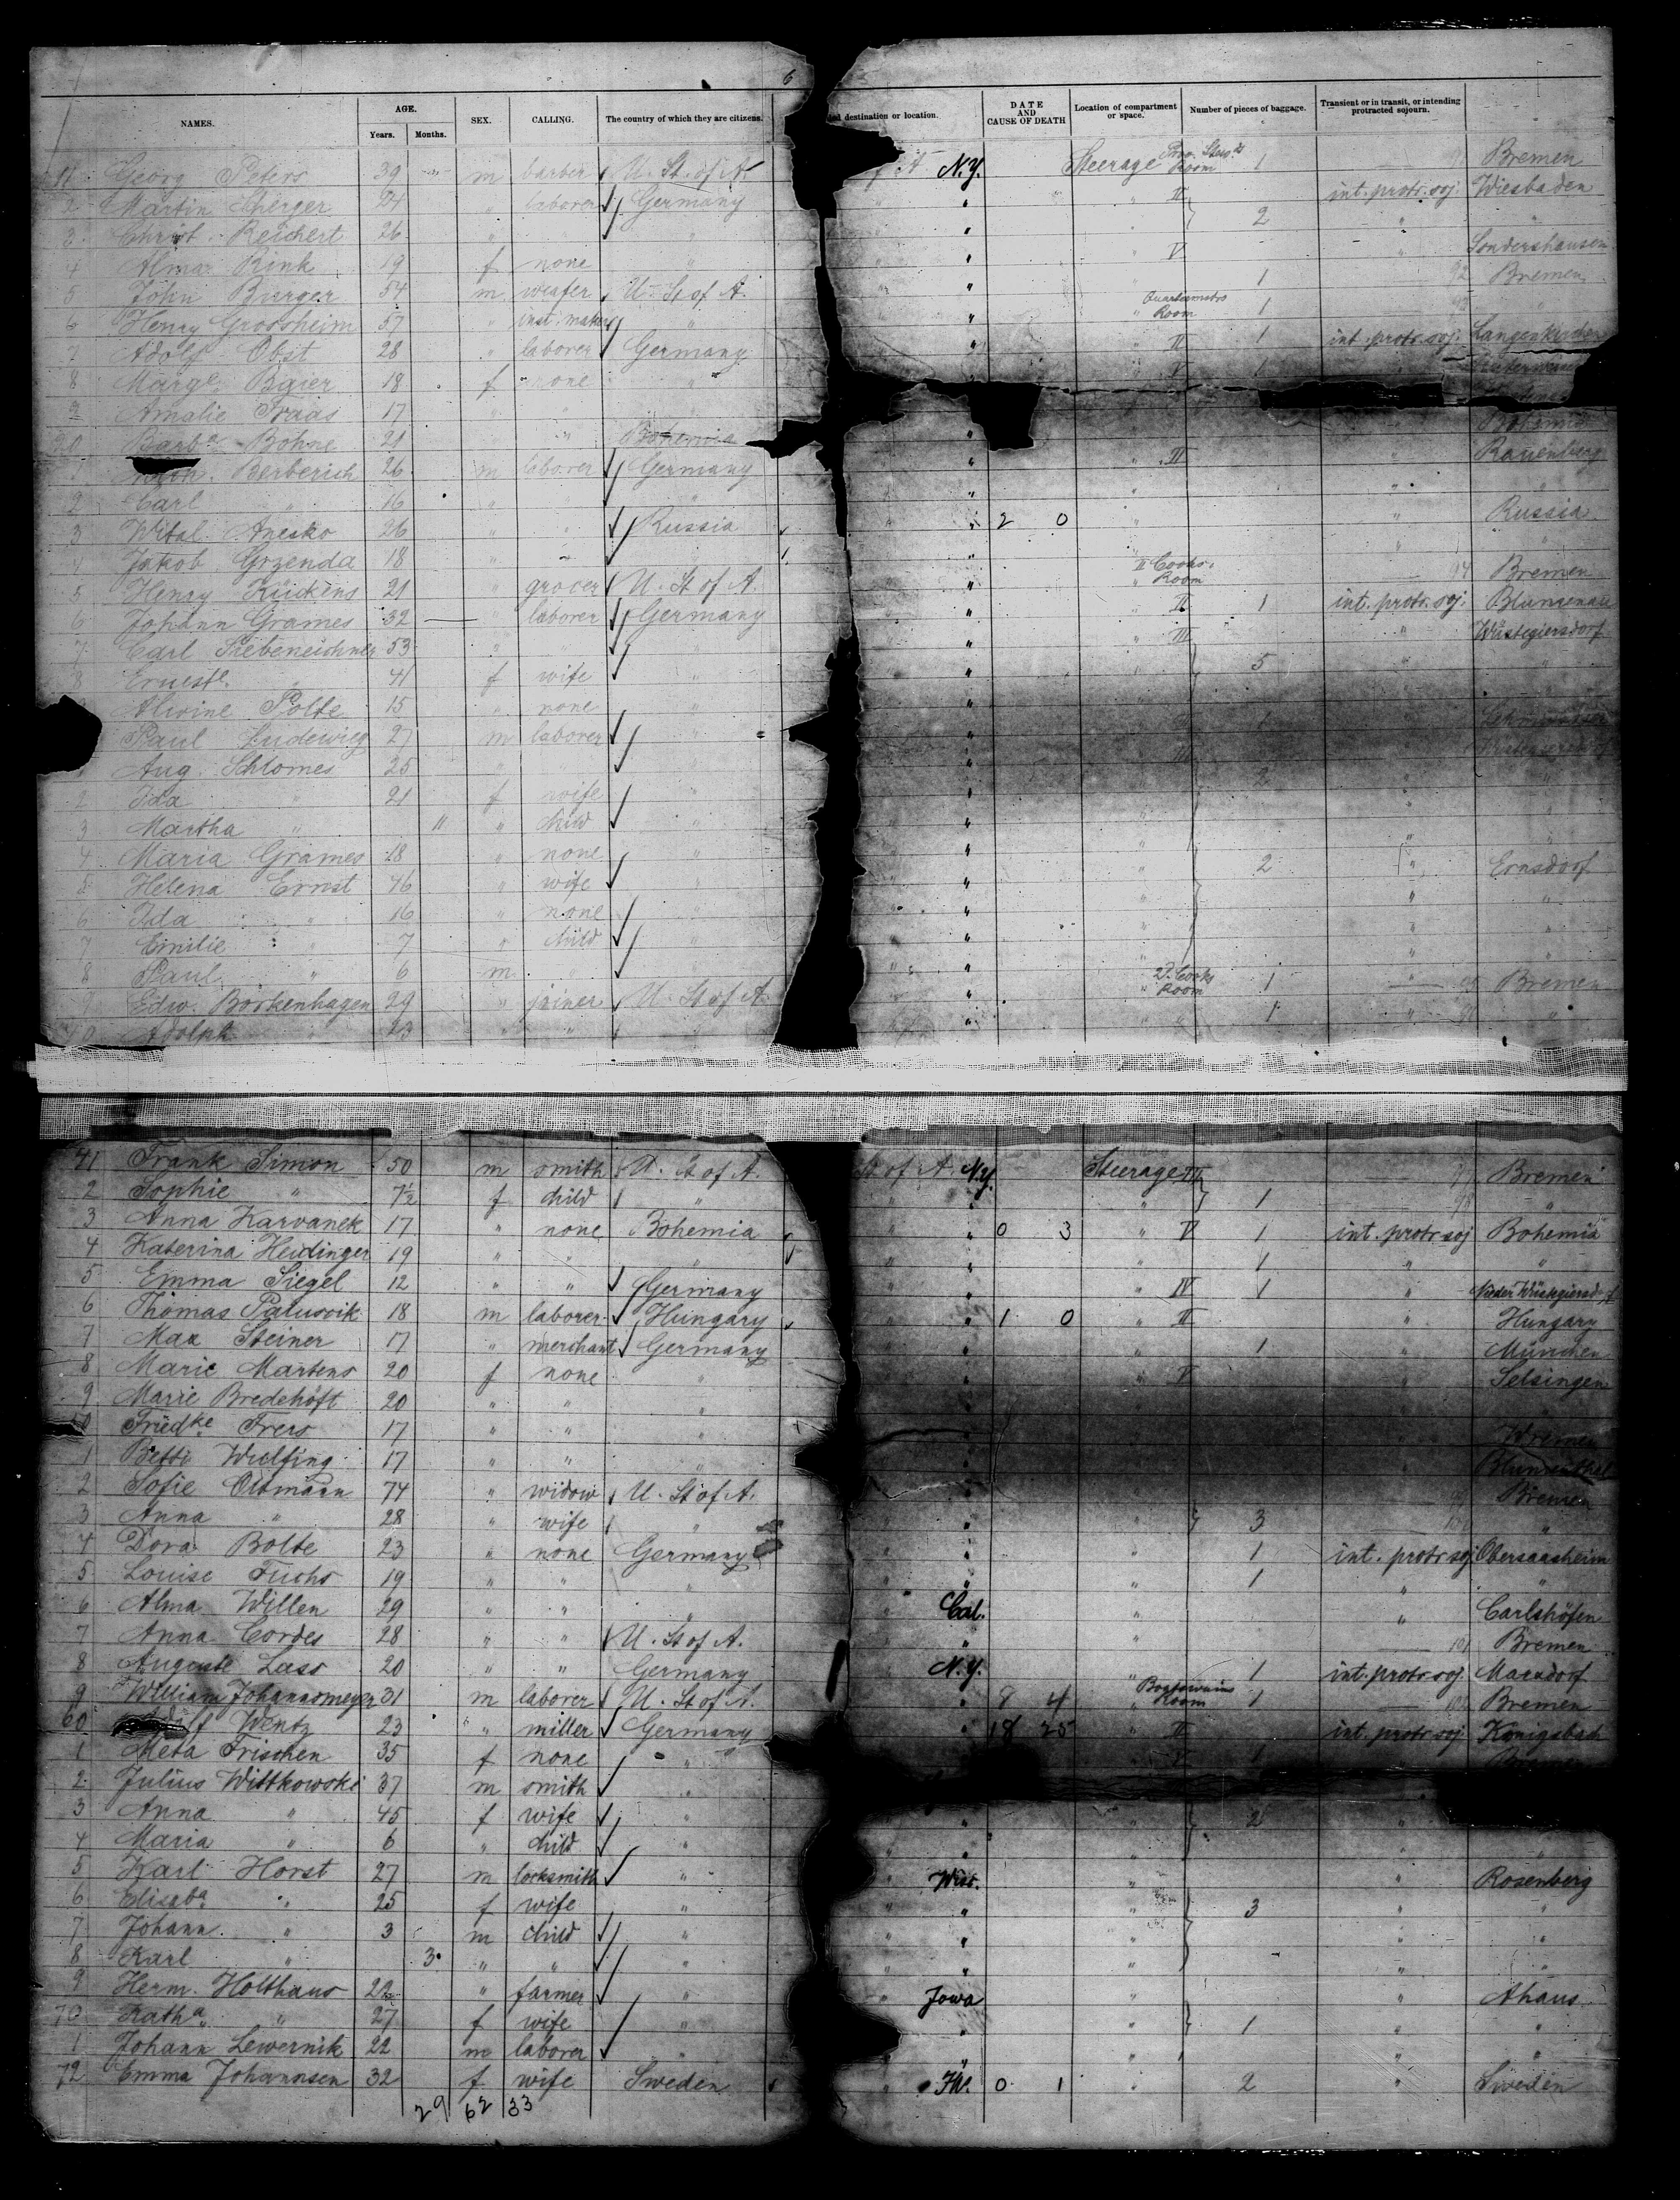 6
NAMES. AGE. Years. Months. SEX. CALLING. The country of which they are citizens. destination or location. DATE AND CAUSE OF DEATH Location of compartment or space. Number of pieces of baggage. Transient or in transit, or intending protracted sojourn.
11 Georg Peters 39 m barber U. St. of A. A N.Y. Steerage Room 1 Bremen
2 Martin 24 " laborer Germany " " II int. protr. soj. Wiesbaden
3 Christ. Reichert 26 " " " " 2 " "
4 Alma Rink 19 f none " " " V " Sondershausen
5 John Burger 54 m U. St of A. " 1 92 Bremen
6 Henry Grossheim 57 " inst. maker " " " Room 1 "
7 Adolf Obst 28 " laborer Germany " " II 1 int. protr. soj.
8 Marge. Baier 18 f none " " V 1
9 Amalie Fraas 17 " " "
20 Barba. Böhne 21 " " Bohemia " Bohemia
1 Berberich 26 m laborer Germany " " II " Rauenberg
2 Carl " 16 " " " " " " "
3 Wital Anesko 26 " " Russia " 2 0 " " Russia
4 Jakob Grzenda 18 " " " " " "
5 Henry Lückens 21 " grocer U. St of A. " II Cooks. Room 94 Bremen
6 Johann Grames 32 " laborer Germany " " II 1 int. protr. soj. Blumenau
7 Carl Siebeneichner 53 " " " " " III " Wüstegiersdorf
8 Ernestl. " 41 f wife " " " 5 " "
Alwine Polte 15 " none " " "
Paul Ludewieg 27 m laborer " " 1 "
Aug. Schlomes 25 " " " " III 2 "
2 Ida " 21 f wife " " " " "
3 Martha " 11 " child " " " " "
4 Maria Grames 18 " none " " " " "
5 Helena Ernst 46 " wife " " " 2 " Ernsdorf
6 Ida " 16 " none " " " " "
7 Emilie " 7 " child " " " " "
8 Paul " 6 m " " " " " "
9 Edw. Borkenhagen 29 " joiner U. St of A. " " Cooks Room 1 95 Bremen
Adolph " 23 " " " " " 1 "
41 Frank Simon 50 m smith U. St of A. St of A. N.Y. Steerage III 97 Bremen
2 Sophie " 7½ f child " " " " 1 98 "
3 Anna Karvanek 17 " none Bohemia " " 0 3 " V 1 int. protr soj Bohemia
4 Katerina Heidinger 19 " " " " " " 1 " "
5 Emma Siegel 12 " " Germany " " " IV 1 " Nieder Wüstegiersdorf
6 Thomas Palusvik 18 m laborer Hungary " " 1 0 " II " Hungary
7 Max Steiner 17 " merchant Germany " " " 1 " München
8 Marie Martens 20 f none " " " " V " Selsingen
9 Marie Bredehöft 20 " " " " "
50 Friedke Frers 17 " " " " Bremen
1 Betti Wülfing 17 " " " " " Blumenthal
2 Sofie Oltmann 74 " widow U. St of A. " 99 Bremen
3 Anna " 28 " wife " " " " 3 100 "
4 Dora Bolte 23 " none Germany " " " 1 int. protr soj Obersaasheim
5 Louise Fuchs 19 " " " " " " 1 " "
6 Alma Willen 29 " " " " Cal. " " Carlshöfen
7 Anna Cordes 28 " " U. St of A. " " " 101 Bremen
8 Auguste Lass 20 " " Germany " N.Y. " 1 int. protr. soj.
9 William Johannsmeyer 31 m laborer U. St of A. " 8 4 Boatswains Room 1 102 Bremen
60 Adolf Wentz 23 " miller Germany " 18 25 " II int. protr soj Königsbach
1 Meta Frischen 35 f none " " V 1
2 Julius Wittkowski 37 m smith "
3 Anna " 45 f wife " " " " 2 "
4 Maria " 6 " child " " " " " "
5 Karl Horst 27 m locksmith " " Wisc. " " Rosenberg
6 Elisabа. " 25 f wife " " " " 3 " "
7 Johann. " 3 m child " " " " " "
8 Karl " 3 " " " " " " " "
9 Herm. Holthaus 22 " farmer " " Iowa " " Ahaus
70 Katha. " 27 f wife " " " " 1 " "
1 Johann Lewernik 22 m laborer " " " " " "
72 Emma Johannsen 32 f wife Sweden " Ill. 0 1 " 2 " Sweden
29 62 33